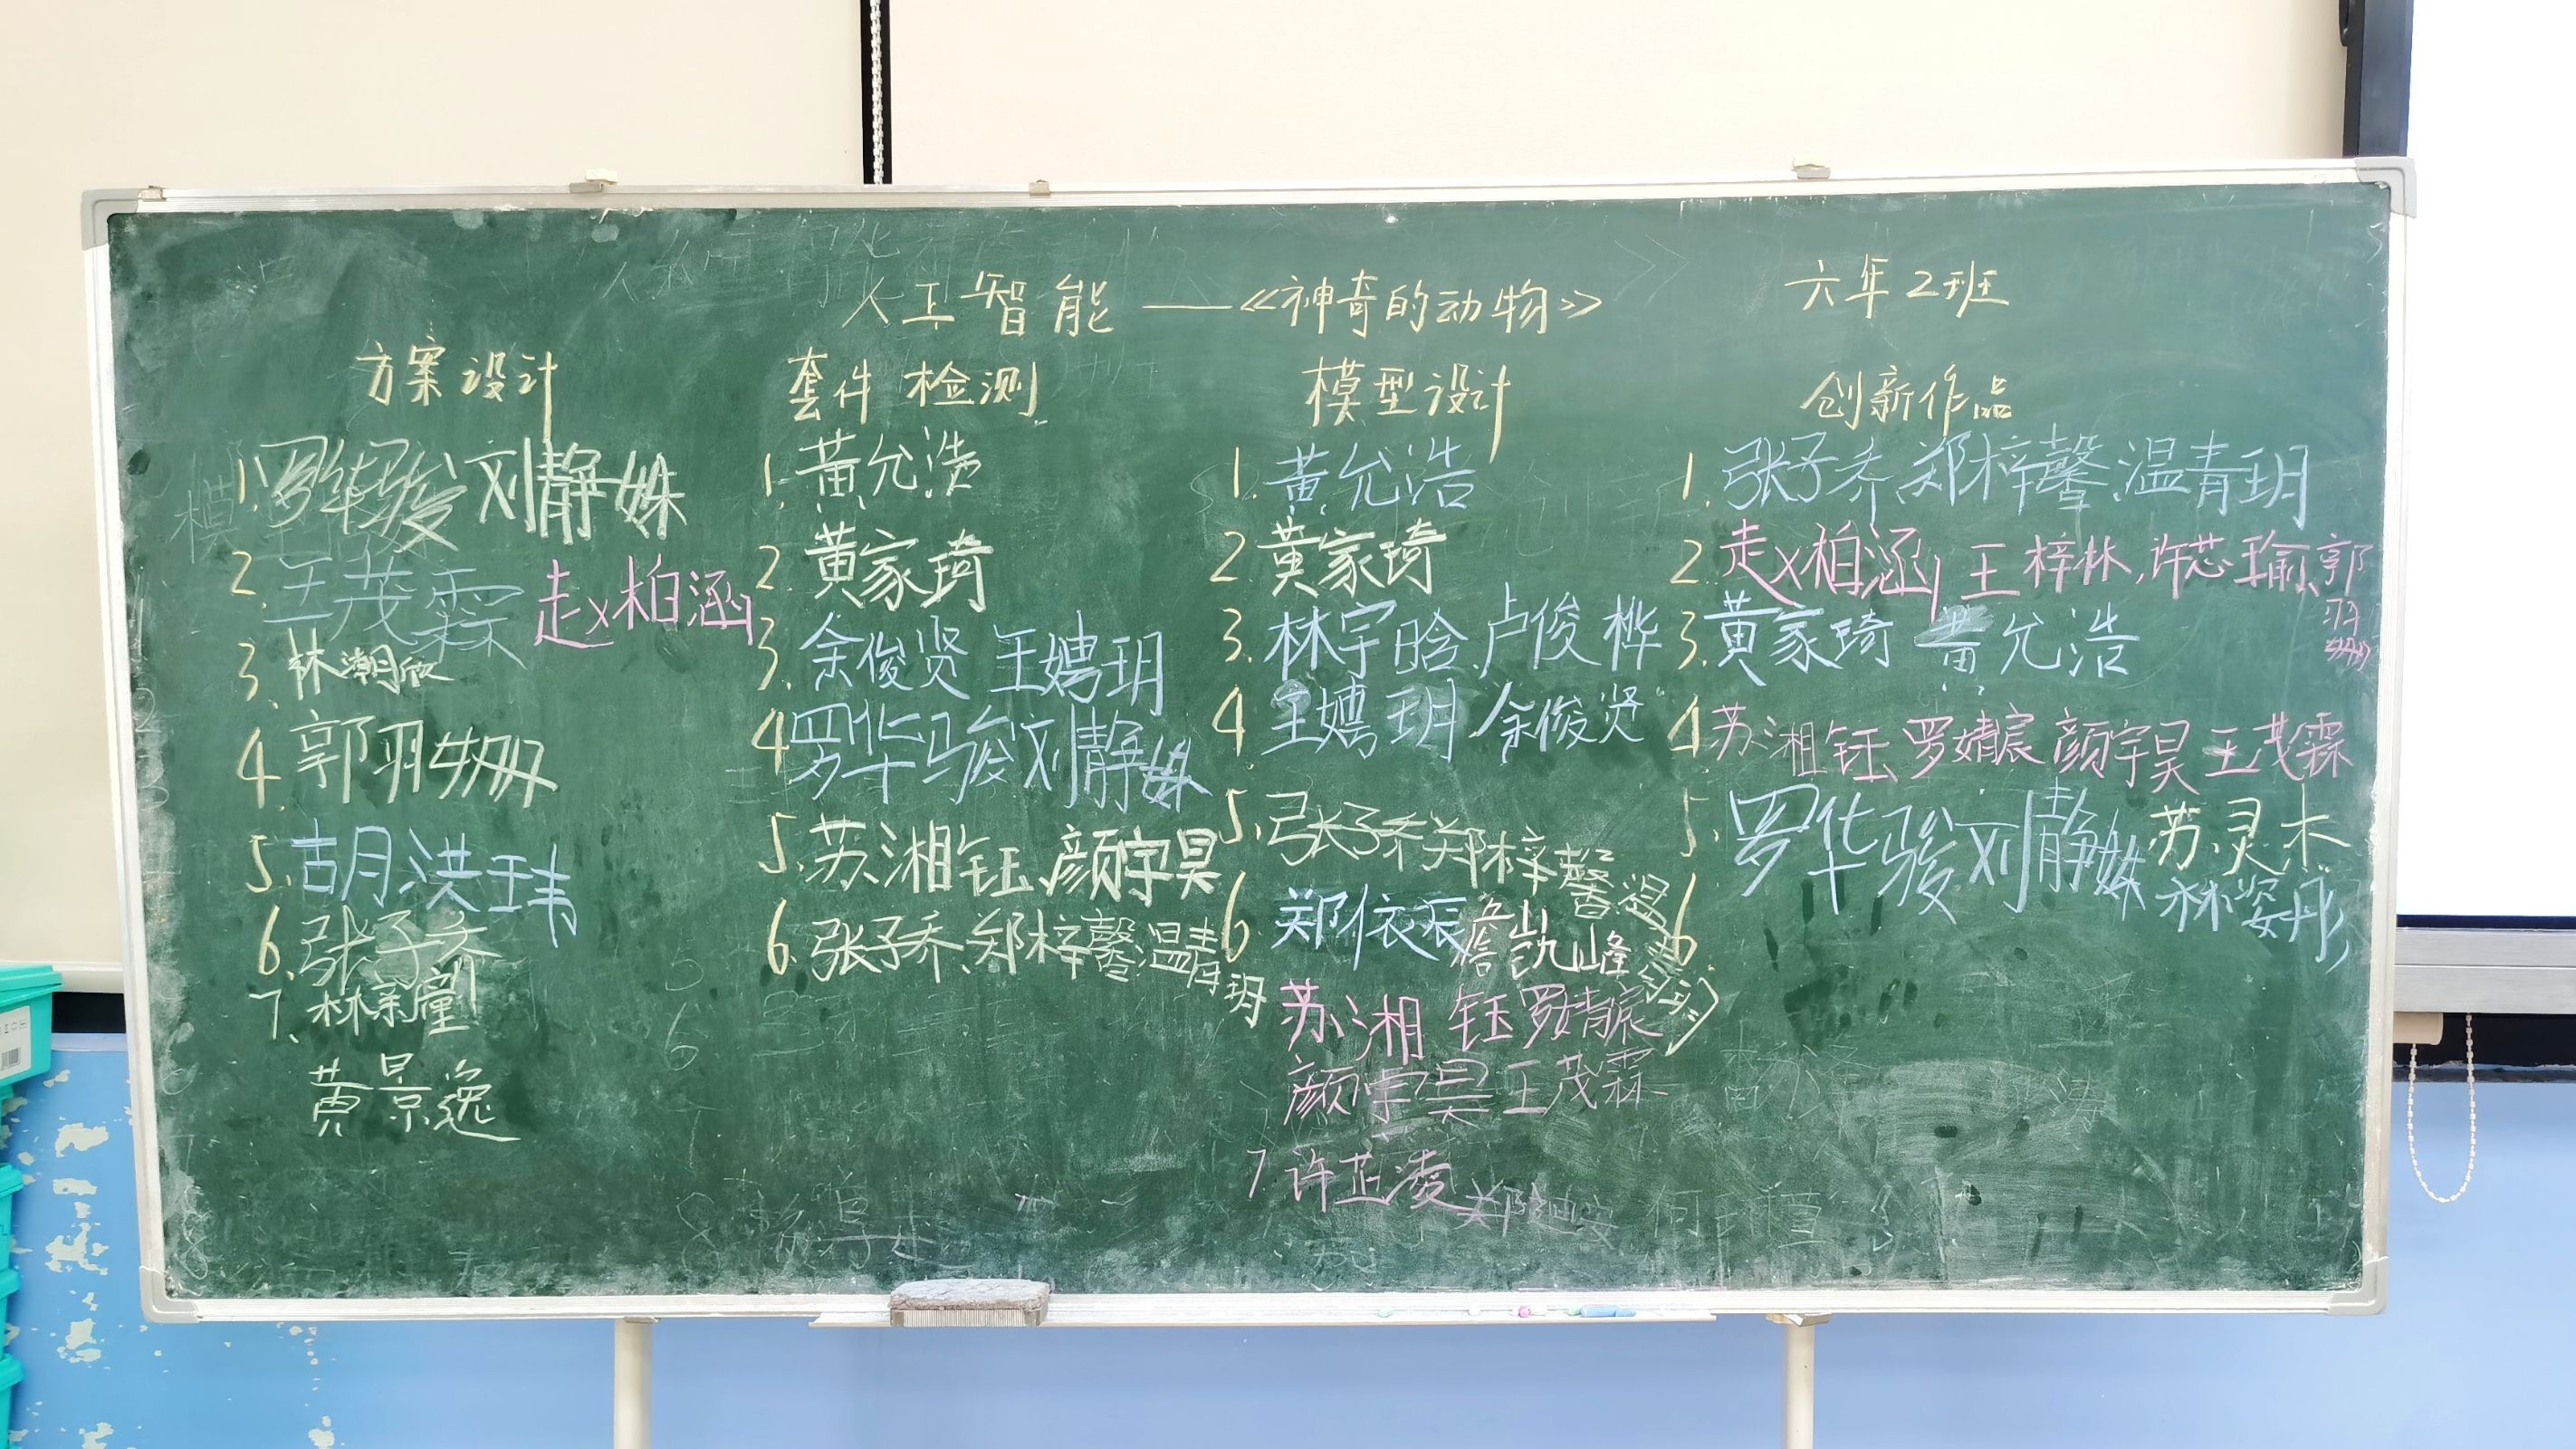 人工智能——《神奇的动物》 六年2班
方案设计
1. 罗华骏 刘静姝
2. 王茂霖 赵柏涵
3. 林潮欣
4. 郭羽姗
5. 胡洪玮
6. 张子乔
7. 林
黄景逸
套件检测
1. 黄允浩
2. 黄家琦
3. 余俊贤 王娉玥
4 罗华骏 刘静姝
5. 苏湘钰、颜宇昊
6. 张子乔、郑梓馨、温青玥
模型设计
1. 黄允浩
2. 黄家琦
3. 林宇晗、卢俊桦
4 王娉玥 余俊贤
5. 张子乔 郑梓馨 温青玥
6 郑依辰 詹凯峰
苏湘钰 罗婧宸
颜宇昊 王茂霖
7 许芷凌
创新作品
1. 张子乔、郑梓馨、温青玥
2. 赵柏涵, 王梓林, 许芯瑜、郭羽姗
3. 黄家琦 黄允浩
4 苏湘钰 罗婧宸 颜宇昊 王茂霖
5. 罗华骏 刘静姝 苏灵杰
林姿彤
6